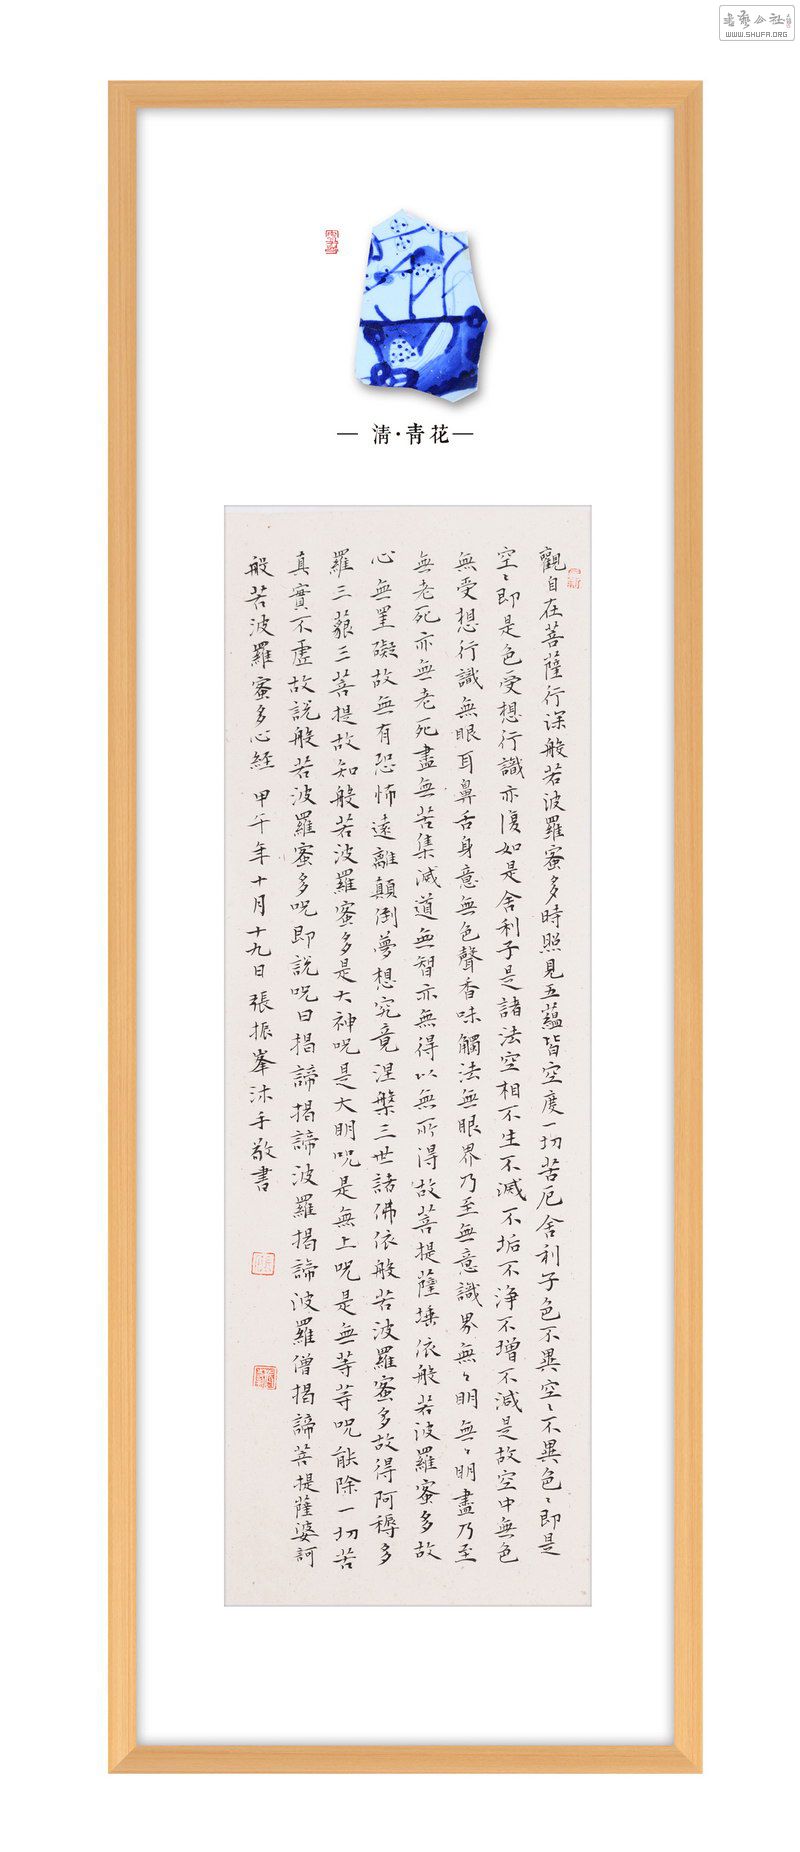 書藝公社
WWW.SHUFA.ORG
— 清·青花 —
觀自在菩薩行深般若波羅蜜多時照見五蘊皆空度一切苦厄舍利子色不異空〻不異色〻即是
空〻即是色受想行識亦復如是舍利子是諸法空相不生不滅不垢不淨不增不減是故空中無色
無受想行識無眼耳鼻舌身意無色聲香味觸法無眼界乃至無意識界無〻明無〻明盡乃至
無老死亦無老死盡無苦集滅道無智亦無得以無所得故菩提薩埵依般若波羅蜜多故
心無罣礙故無有恐怖遠離顛倒夢想究竟涅槃三世諸佛依般若波羅蜜多故得阿耨多
羅三藐三菩提故知般若波羅蜜多是大神呪是大明呪是無上呪是無等等呪能除一切苦
真實不虛故說般若波羅蜜多呪即說呪曰揭諦揭諦波羅揭諦波羅僧揭諦菩提薩婆訶
般若波羅蜜多心経 甲午年十月十九日 張振峯沐手敬書